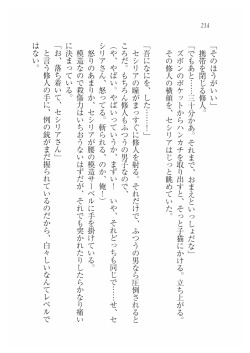 214
「そのほうがいい」
携帯を閉じる修人。
「でもあと……二十分かあ。それまで、おまえといっしょだな」
ズボンのポケットからハンカチを取り出すと、そっと子猫にかける。立ち上がる。
その修人の横顔を、セシリアはじっと眺めていた。
「吾になにを、した……！」
セシリアの瞳がまっすぐに修人を射る。それだけで、ふつうの男なら圧倒されると
ころだ。もちろん修人もふつうの男子なので、
（や、やばい。やばいっていうか、まずい！　いや、それどっちも同じで……せ、セ
シリアさん、怒ってる。斬られる。のか、俺！）
怒りのあまりか、セシリアが腰の模造サーベルに手を掛けている。
模造なので殺傷力はいちおうないはずだが、それでも突かれたりしたらかなり痛い
に決まっている。
「お、落ち着いて、セシリアさん」
と言う修人の手に、例の銃がまだ握られているのだから、白々しいなんてレベルで
はない。